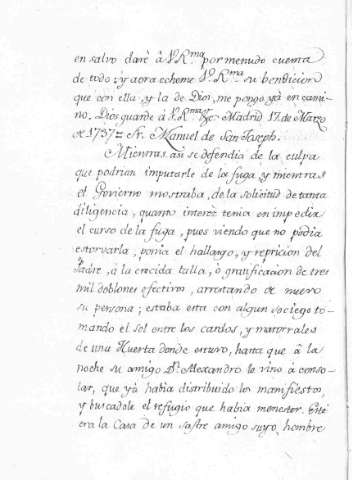 en salvo darè â V. Rma. por menudo cuenta
de todo: y aora echeme V. Rma. su bendicion
que con ella, y la de Dios, me pongo yà en cami-
no. Dios guarde â V. Rma. &c. Madrid 17. de Marzo
de 1737= Fr. Manuel de San Joseph.
Mientras asi se defendia de la culpa
que podrian imputarle de los fuga, y mientras
el Govierno mostraba, de la solicitud de tanta
diligencia, quanto interès tenia en impedia
el curso de la fuga, pues viendo que no podia
estorvarla, ponia el hallazgo, y reprision del
Padre, â la crecida talla, ò gratificacion de tres
mil doblones efectivos, arrestando de nuevo
su persona; estaba esta con algun sociego to-
mando el sol entre los cardos, y matorrales
de una Huerta donde estuvo, hasta que â la
noche su amigo Dn. Alexandro le vino â conso-
lar, que yà habia distribuido los manifiestos,
y buscadole el refugio que habia menester. Este
era la Casa de un sastre amigo suyo, hombre